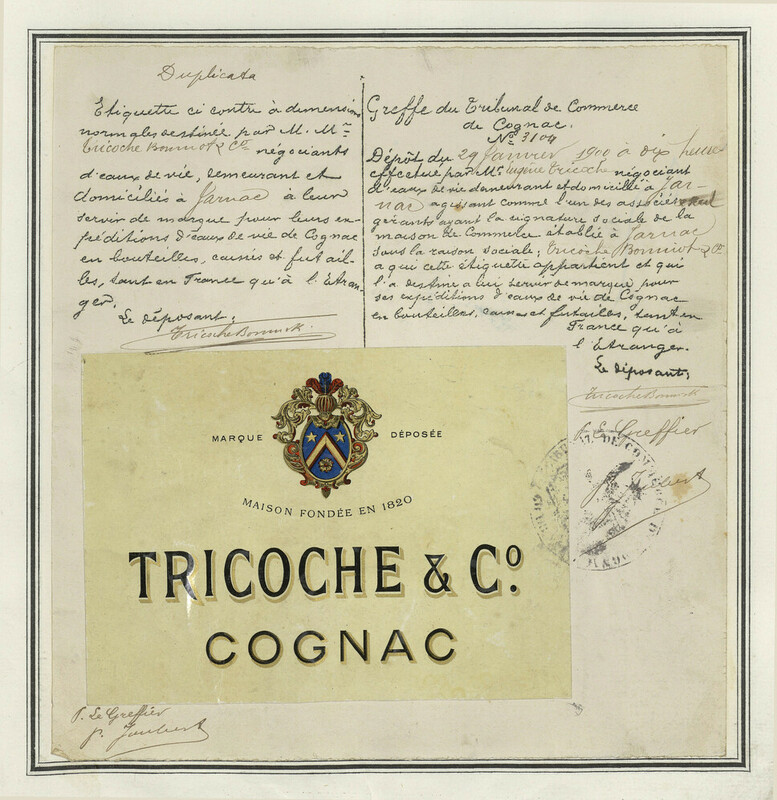 Duplicata
Etiquette ci contre à dimensions
normales destinée par M. Mrs
Tricoche Bonniot & Co négociants
d'eaux de vie, demeurant et
domiciliés à Jarnac à leur
servir de marque pour leurs ex-
péditions d'eaux de vie de Cognac
en bouteilles, caisses et futail-
les, tant en France qu'à l'Etran-
ger.
Le déposant:
Tricoche Bonniot
Greffe du Tribunal de Commerce
de Cognac.
No 3104
Dépôt du 29 Janvier 1900 à dix heures
effectué par Mr Eugène Tricoche négociant
d'eaux de vie demeurant et domicilié à Jar-
nac agissant comme l'un des associés
gérants ayant la signature sociale de la
maison de Commerce établie à Jarnac
sous la raison sociale; Tricoche Bonniot & Co
a qui cette étiquette appartient et qui
l'a destiné a lui servir de marque pour
ses expéditions d'eaux de vie de Cognac
en bouteilles, caisses et futailles, tant en
France qu'à
l'Etranger.
Le déposant;
Tricoche Bonniot
P. Le Greffier
Joubert
MARQUE DÉPOSÉE
MAISON FONDÉE EN 1820
TRICOCHE & Co.
COGNAC
P. Le Greffier
P. Joubert